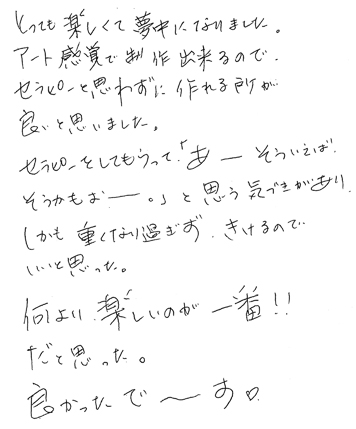 とっても楽しくて夢中になりました。
アート感覚で制作出来るので、
セラピーと思わずに作れる所が
良いと思いました。
セラピーをしてもらって、「あーそういえば
そうかもなー。」と思う気づきがあり
しかも重くなり過ぎず、きけるので
いいと思った。
何より、楽しいのが一番!!
だと思った。
良かったで〜す♡